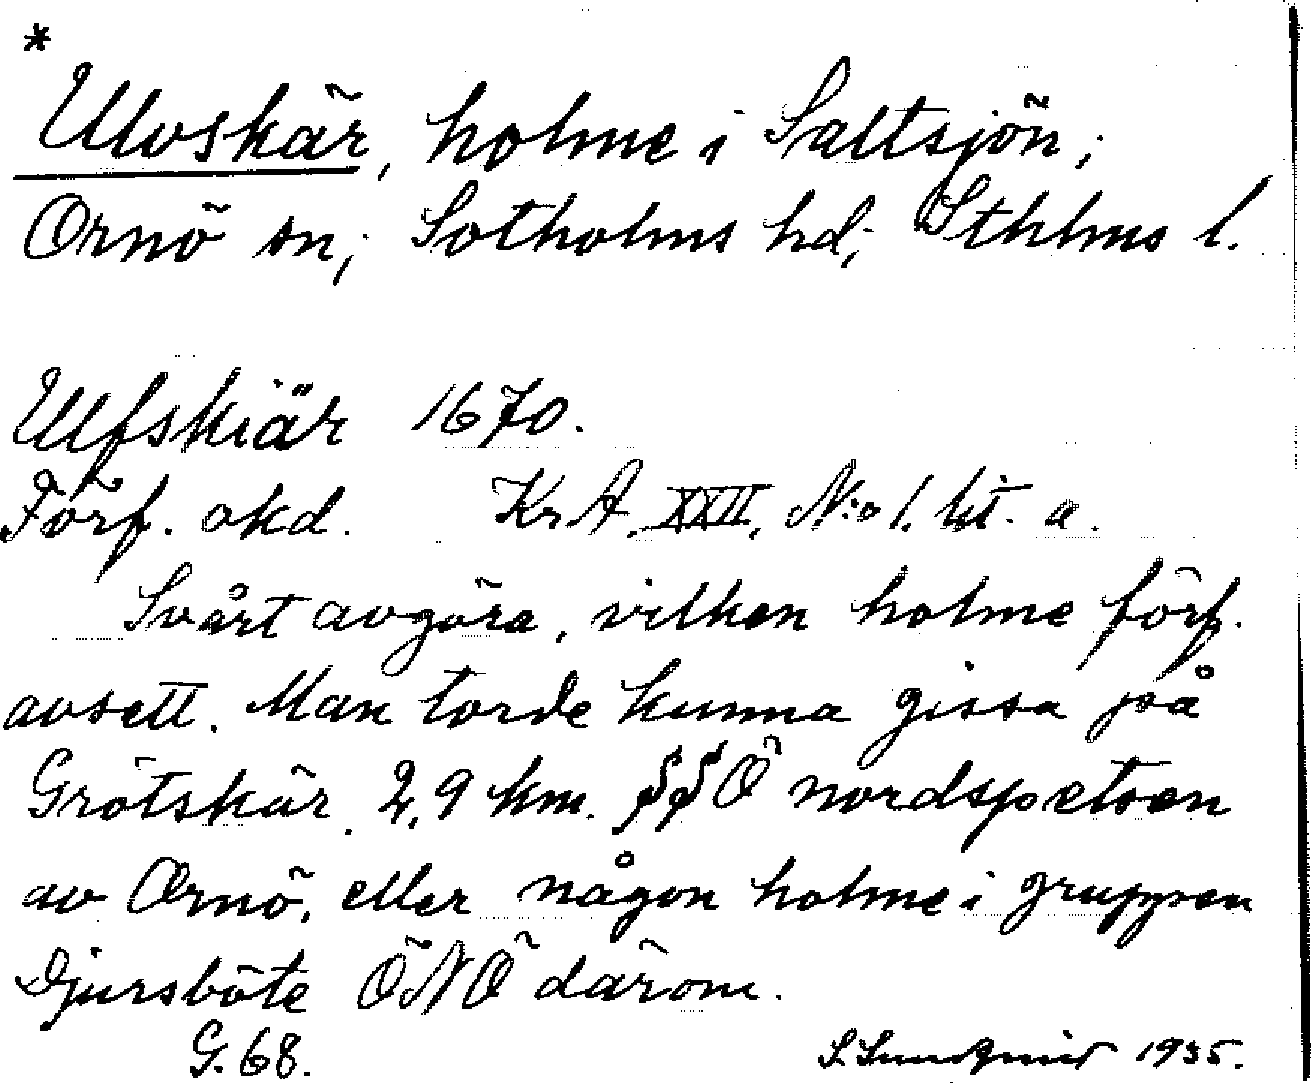 *
Ulvskär, holme i Saltsjön;
Ornö sn; Sotholms hd; Sthlms l.
Ulfskiär 1670.
Förf. okd. KrA. XXII, N:o 1. lit. a.
Svårt avgöra, vilken holme förf.
avsett. Man torde kunna gissa på
Grötskär 2,9 km. SSÖ nordspetsen
av Ornö, eller någon holme i gruppen
Djursböte ÖNÖ därom.
G. 68. S. Sundqvist 1935.